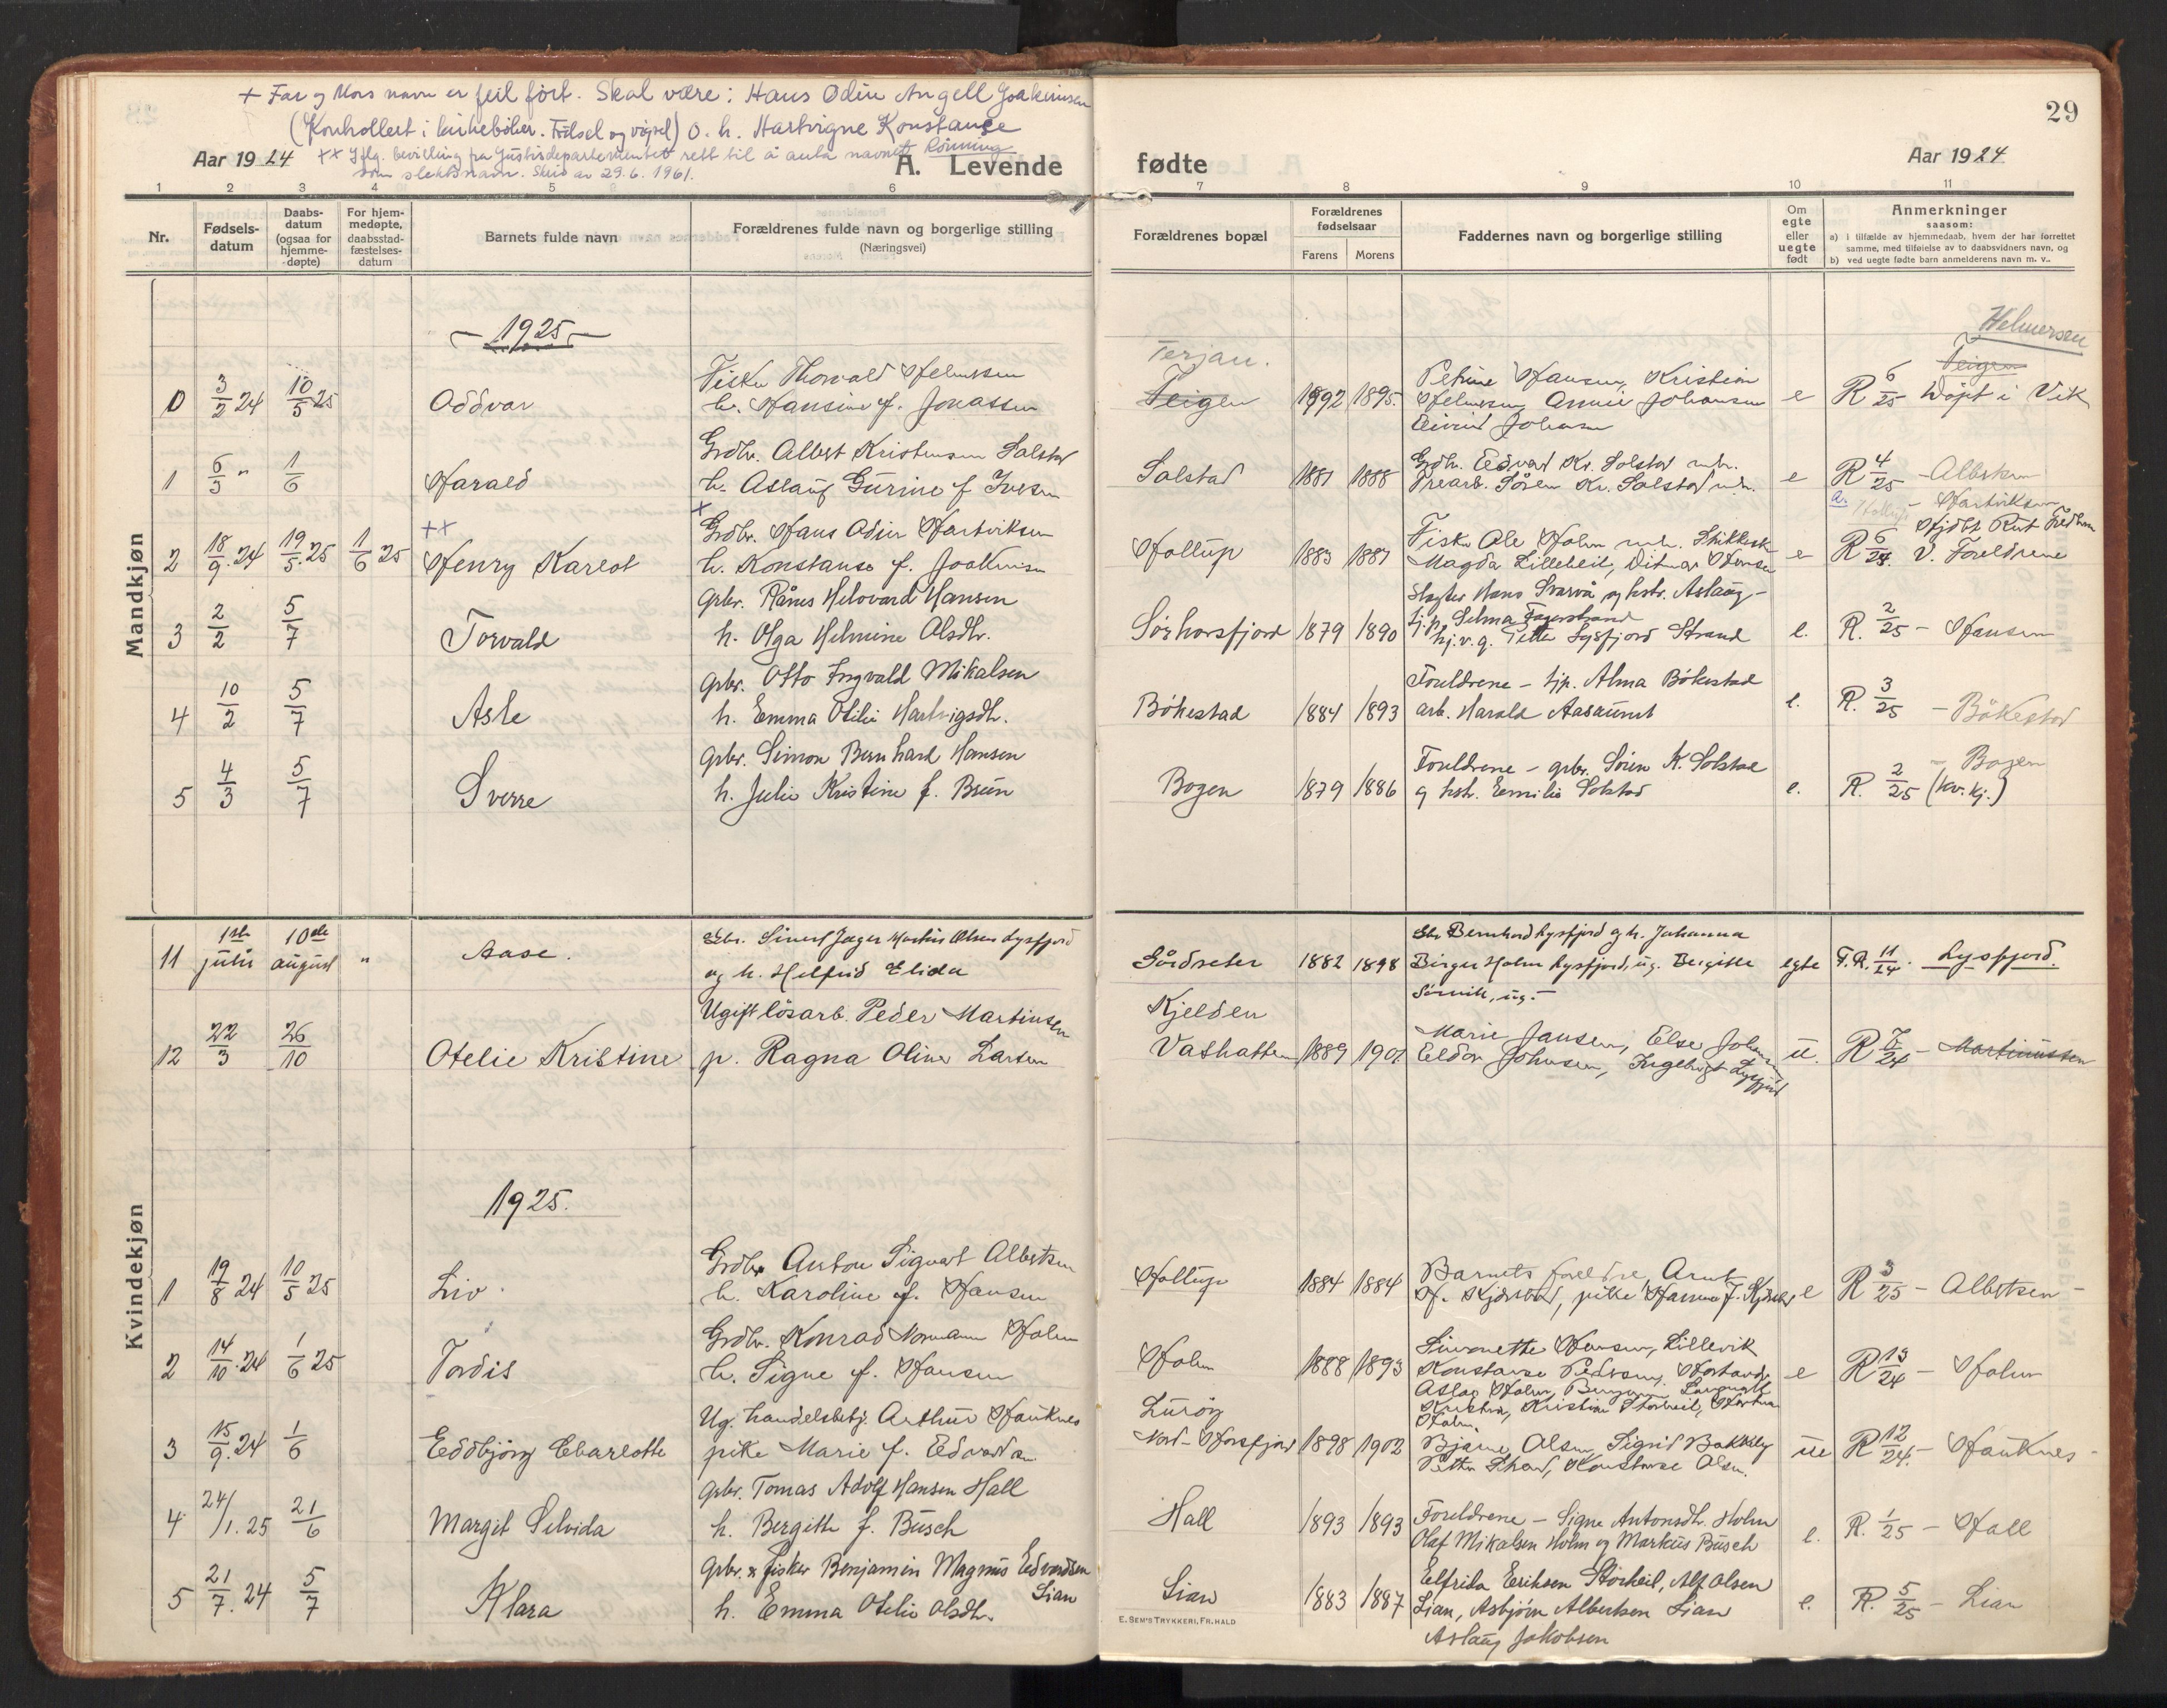 + Far og Mors navn er feil ført. Skal være: Hans Odin Angell Joakimsen
(Kontrollert i kirkebøker. Fødsel og vigsel) o. h. Hartvigne Konstanse
++ Iflg. bevilling fra Justisdepartementet rett til å anta navnet Rönning
som slektsnavn. Skriv av 29.6.1961.
Aar 1924
A. Levende
fødte
Aar 1924
29
1 2 3 4 5 6 7 8 9 10 11
Nr.
Fødsels-datum
Daabs-datum (ogsaa for hjemme-døpte)
For hjem-medøpte, daabsstad-fæstelses-datum
Barnets fulde navn
Forældrenes fulde navn og borgerlige stilling
(Næringsvei)
Forældrenes bopæl
Forældrenes fødselsaar
Farens Morens
Faddernes navn og borgerlige stilling
Om egte eller uegte født
Anmerkninger
saasom:
a) i tilfælde av hjemmedaab, hvem der har forrettet
samme, med tilføielse av to daabsvidners navn, og
b) ved uegte fødte barn anmelderens navn m. v..
Mandkjøn
1925
Helmersen
Terjan.
Teigen
0 3/2 24 10/5 25 Oddvar
Fisker Thorvald Helmersen
h. Hansine f. Jonassen
Teigen 1892 1895.
Petrine Hansen, Kristian
Helmersen, Annie Johansen
Eivind Johansen
e R 6/25 Døpt i Vik
1 6/3 " 1/6 Harald
Grdbr. Albert Kristensen Solstad
h. Aslaug Gurine f. Iversen
Solstad 1881 1888
Grdbr. Edvard Kr. Solstad m.h.
Trearb. Sören Kr. Solstad m.h.
e R 4/25 - Albertsen
++
+
2 18/9.24 19/5.25 1/6 25 Henry Karlot
Grdbr. Hans Odin Hartviksen
h. Konstanse f. Joakimsen
Hollup 1883 1887
Fisker Ole Holm m.h.
Magda Lillebeil, Ditmar Hansen
- Hartviksen
e R 6/24. V. Foreldrene
3 2/2 5/7 Torvald
Gbr. Rånes Helovard Hansen
h. Olga Helmine Olsdtr.
Sørhorsfjord 1879 1890
Slagter Hans Svarvå og hstr. Aslaug -
tj.p. Selma Fagerstrand
hj.v.g. Petter Lysfjord Strand
e. R. 2/25 - Hansen
4 10/2 5/7 Asle
Gbr. Otto Ingvald Mikalsen
h. Emma Otilie Hartvigsdtr.
Bökestad 1884 1893
Foreldrene - tjp. Alma Bökestad
arb. Harald Aasaunet
e. R. 3/25 - Bökestad
5 4/3 5/7 Sverre
Gbr. Simon Bernhard Hansen
h. Julie Kristine f. Brun
Bogen 1879 1886
Foreldrene - gbr. Sören K. Solstad
og hstr. Emilie Solstad
- Bogen
e. R. 2/25 (kv. kj.)
Kvindekjøn
11 1ste juli 10de august " Aase.
Gbr. Sivert Jæger Martin Olsen Lysfjord
og h. Helfrid Elida
Sördseter 1882 1898
Gbr Bernhard Lysfjord og h. Johanna
Birger Holm Lysfjord, ug. Bergitte
Sörvik, ug. -
egte F.R. 11/24. Lysfjord.
12 22/3 26/10 Otelie Kristine
Ugift lösarb. Peder Martinsen
p. Ragna Oline Larsen
Kjelden
Vathatten 1889 1901
Marie Jansen, Else Johansen
Eldor Johnsen, Ingeborg Lysfjord
u. R 7/24 - Martinussen
1925.
1 19/8 24 10/5 25 Liv.
Grdbr. Anton Sigvart Albertsen
h. Karoline f. Hansen
Hollup 1884 1884
Barnets foreldre, Arnt
e R 3/25 - Albertsen -
2 14/10.24 1/6 25 Tordis
Grdbr. Konrad Normann Holm
h. Signe f. Hansen
Holm 1888 1893
Simonette Hansen, Lillevik
Konstanse Pedersen,
Aslag Holm,
Kristian Storbeil,
Holm.
e R 13/24 - Holm
3 15/9.24 1/6 Eddbjörg Charlotte
Ug. handelsbetj. Arthur Hauknes
pike Marie f. Edvardsen
Luröy
Nord-Horsfjord 1898 1902
Bjarne Olsen, Sigrid Bakkely
Petter Strand, Konstanse Olsen.
ue R 12/24. - Hauknes -
4 24/1.25 21/6 Margit Selvida
Gbr. Tomas Adolf Hansen Hall
h. Bergitte f. Busch
Hall 1893 1893
Foreldrene - Signe Antonsdtr. Holm
Olaf Mikalsen Holm og Markus Busch
e. R. 1/25 - Hall
5 21/7.24 5/7 Klara
Gbr. & fisker Benjamin Magnus Edvardsen
Lian
h. Emma Otelie Olsdtr.
Lian 1883 1887
Elfrida Eriksen Storbeil, Alf Olsen
Lian, Asbjörn Albertsen Lian
Aslaug Jakobsen
e. R. 5/25 - Lian
E. SEM'S TRYKKERI, FR.HALD